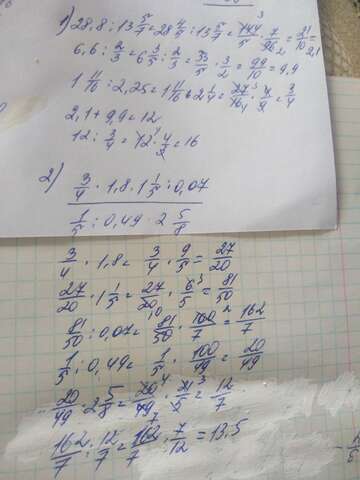 1) 28,8 : 13 5/7 = 28 4/5 : 13 5/7 = 144/5 · 7/96 = 21/10 = 2,1
6,6 : 2/3 = 6 3/5 : 2/3 = 33/5 · 3/2 = 99/10 = 9,9
1 11/16 : 2,25 = 1 11/16 : 2 1/4 = 27/16 · 4/9 = 3/4
2,1 + 9,9 = 12
12 : 3/4 = 12 · 4/3 = 16
2) 3/4 · 1,8 · 1 1/5 : 0,07
1/5 : 0,49 · 2 5/8
3/4 · 1,8 = 3/4 · 9/5 = 27/20
27/20 · 1 1/5 = 27/20 · 6/5 = 81/50
81/50 : 0,07 = 81/50 · 100/7 = 162/7
1/5 : 0,49 = 1/5 · 100/49 = 20/49
20/49 · 2 5/8 = 20/49 · 21/8 = 12/7
162/7 : 12/7 = 162/7 · 7/12 = 13,5